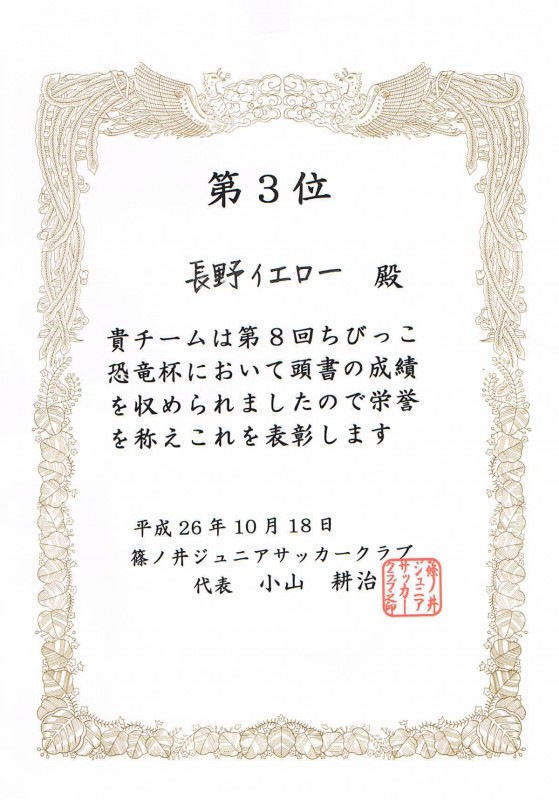 第３位
長野イエロー 殿
貴チームは第８回ちびっこ
恐竜杯において頭書の成績
を収められましたので栄誉
を称えこれを表彰します
平成26年10月18日
篠ノ井ジュニアサッカークラブ
代表 小山 耕治
篠ノ井
ジュニア
サッカー
クラブ之印